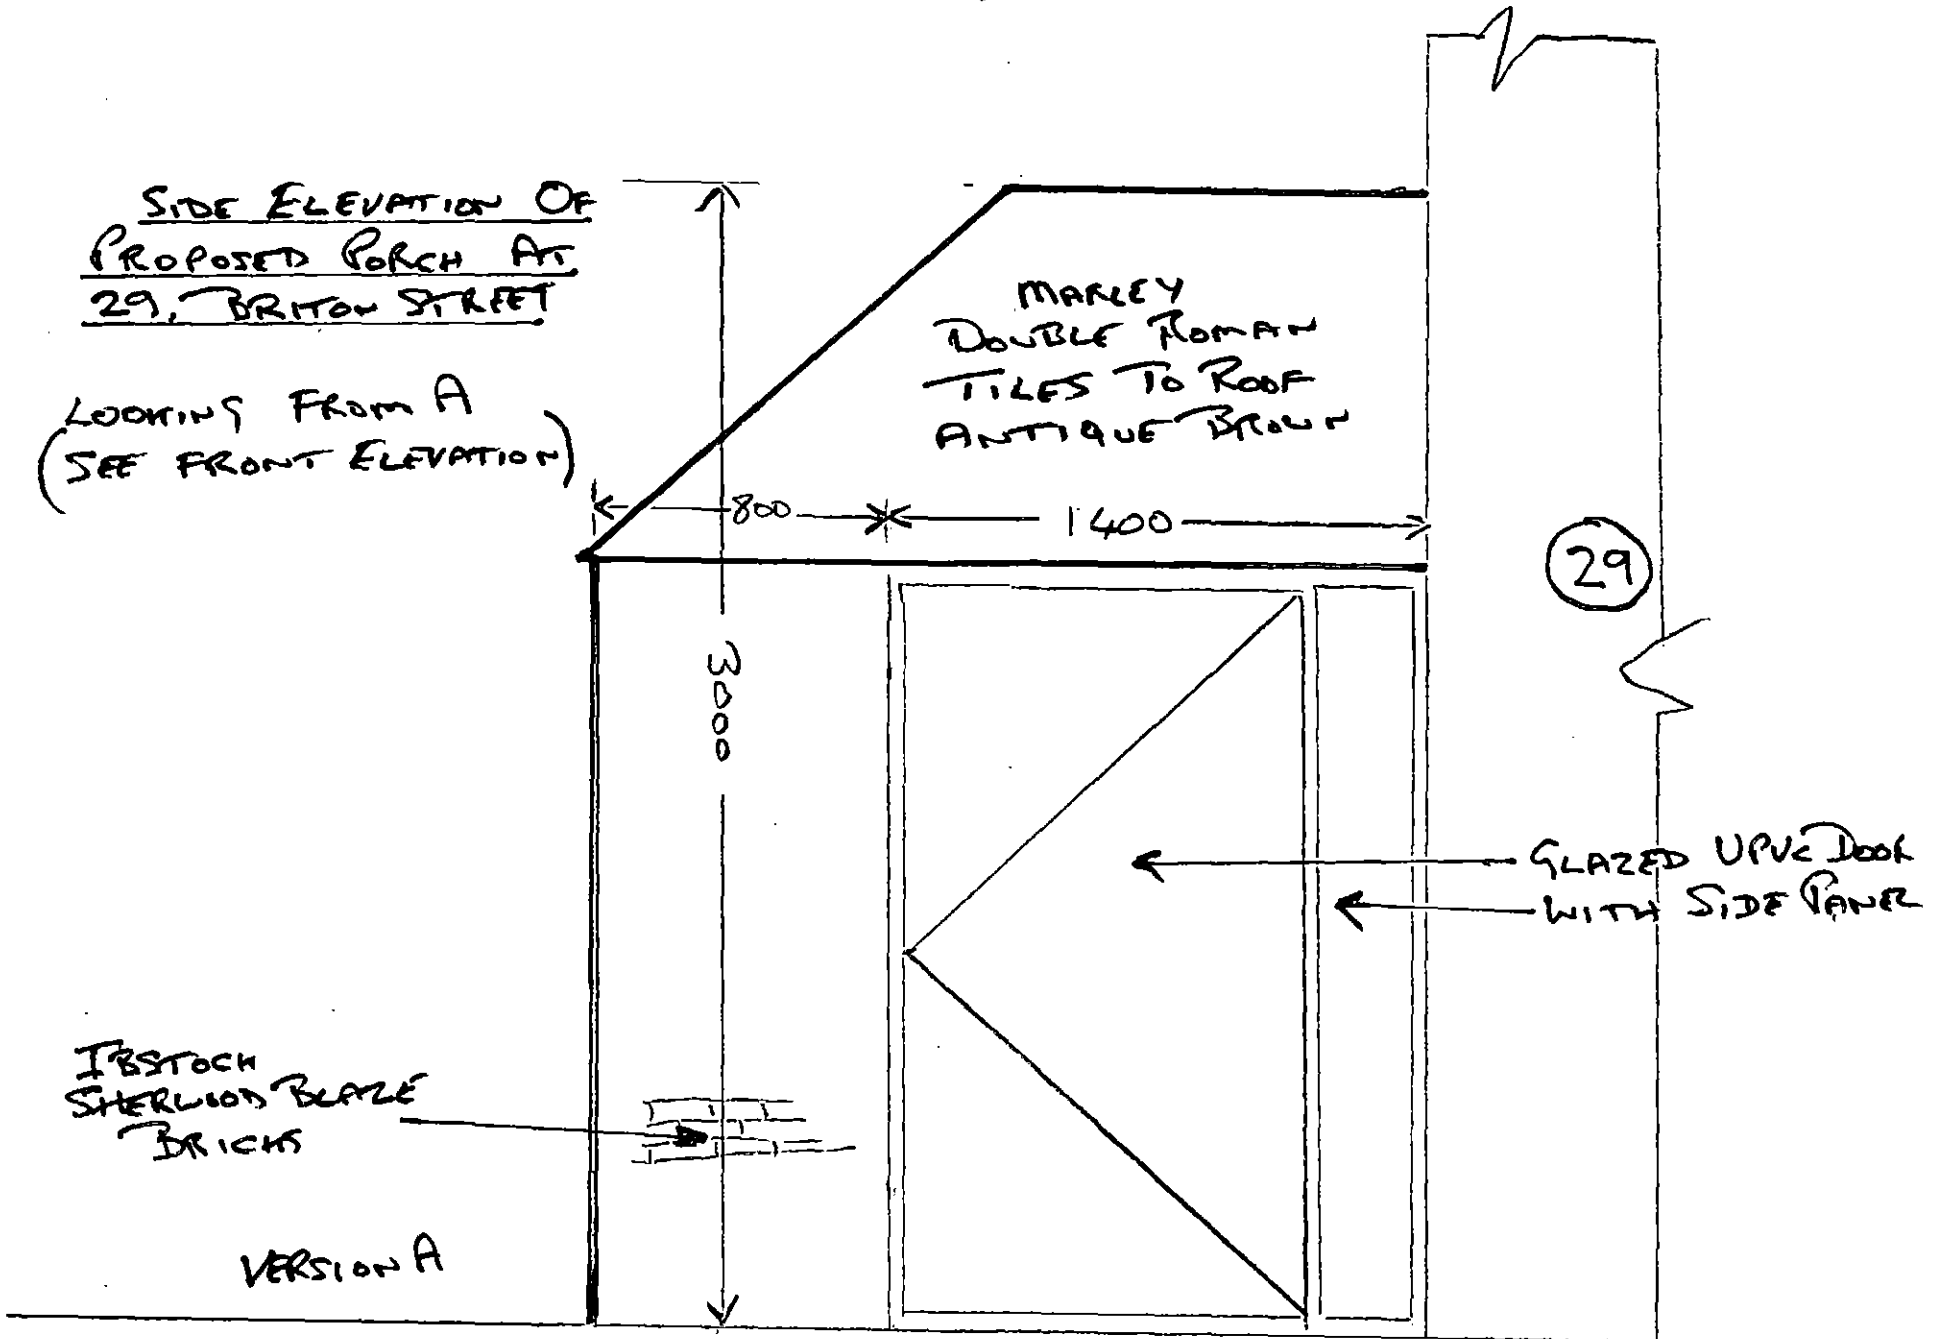 SIDE ELEVATION OF
PROPOSED PORCH AT
29, BRITON STREET
LOOKING FROM A
(SEE FRONT ELEVATION)
MARLEY
DOUBLE ROMAN
TILES TO ROOF
ANTIQUE BROWN
800
1400
3000
29
GLAZED UPVC DOOR
WITH SIDE PANEL
IBSTOCK
SHERWOOD BLAZE
BRICKS
VERSION A